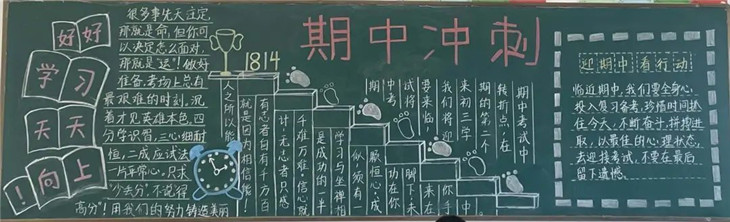 好好
学习
天天
向上!
很多事先天注定,
那就是命,但你可
以决定怎么面对,
那就是运!做好
准备,考场上总有
最艰难的时刻,沉
着才见英雄本色,四
分学识留,三心细耐
恒,二成应试法
一片平常心,只求
"少丢分"不说得
高分"!用我们的努力铸造美丽
1814
期中冲刺
人之所以能
就是因为相信能!
有志者自有千方百
计,无心者只感
千难万难,信心就
是成功的一半
学习与坐禅相
似,须有一
颗恒心,成
功在你
脚下,未
来在
你手
中
期中考试中
转折点,在
期的第二个
来初三学
我们将迎
要来临,
试将
中考
期
迎期中 看行动
临近期中,我们要全身心
投入复习备考,珍惜时间抓
住今天,不断奋于,拼搏进
取,以最佳的心理状态,
去迎接考试,不要在最后
留下遗憾。